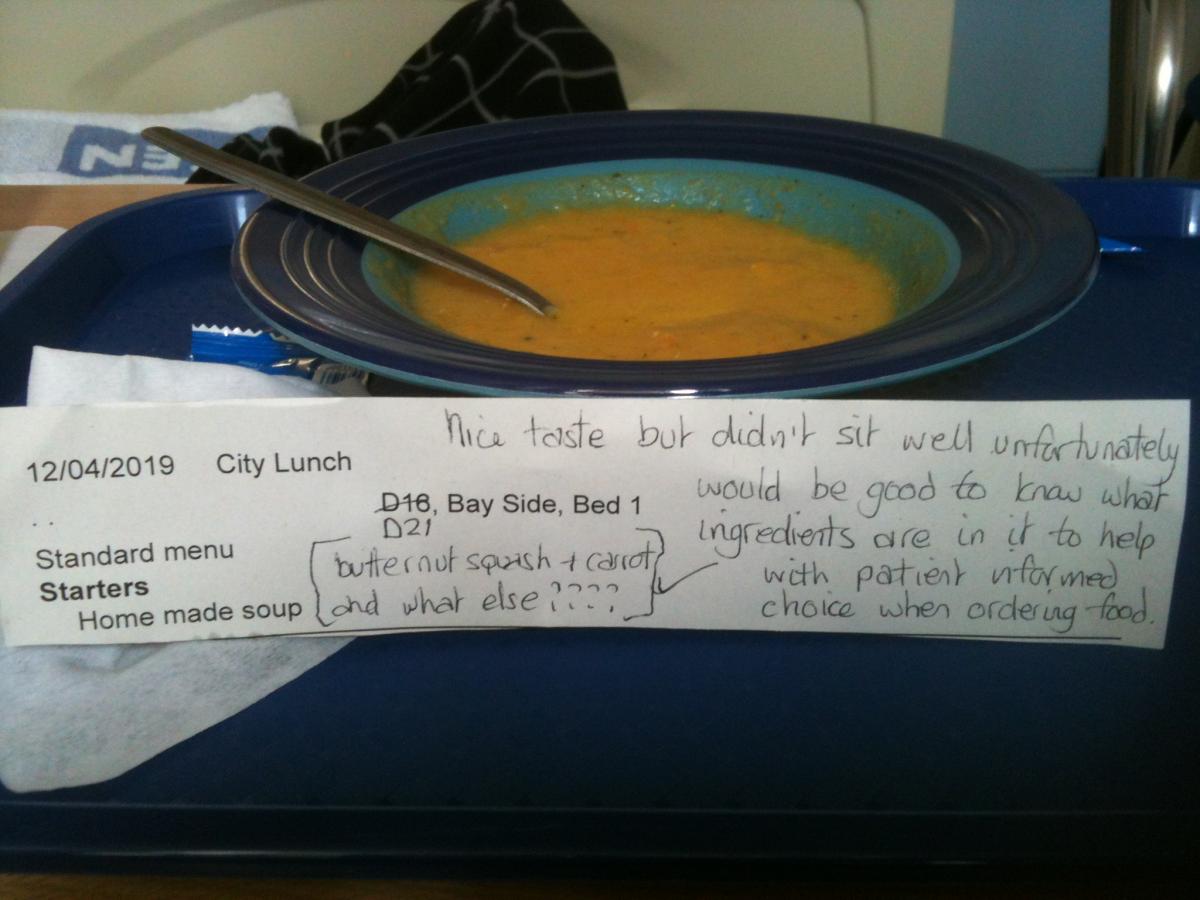 EN
12/04/2019 City Lunch
D16, Bay Side, Bed 1
D21
Standard menu
Starters
Home made soup
butternut squash + carrot
and what else ????
Nice taste but didn't sit well unfortunately
would be good to know what
ingredients are in it to help
with patient informed
choice when ordering food.